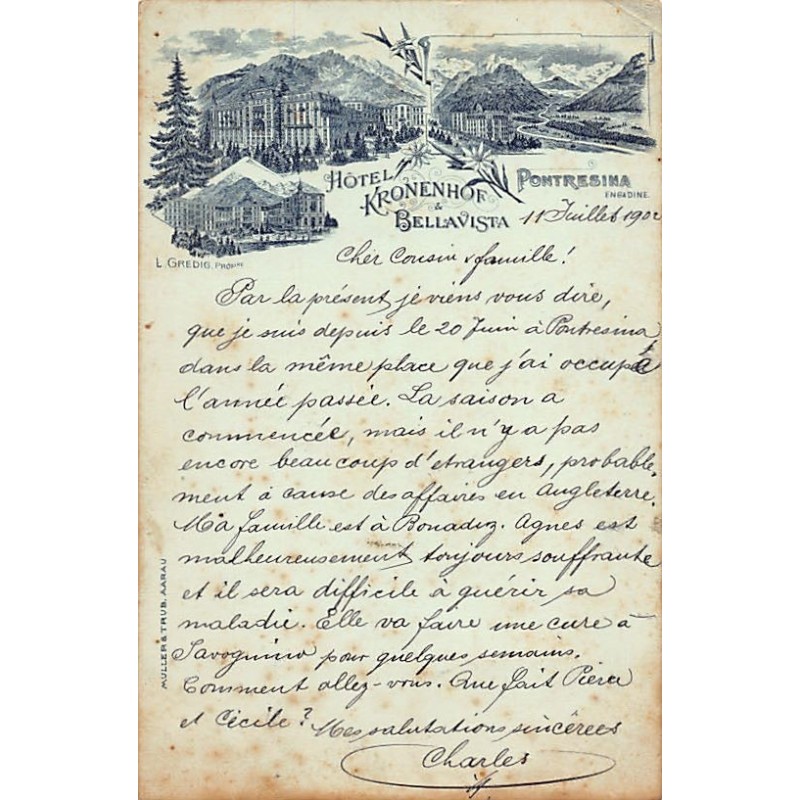 HÔTEL
KRONENHOF
&
BELLAVISTA
PONTRESINA
ENGADINE.
L. GREDIG, PROPRE
11 Juillet 1902
Cher Cousin & famille!
Par la présent je viens vous dire,
que je suis depuis le 20 Juin à Pontresina
dans la même place que j'ai occupé
l'année passée. La saison a
commencée, mais il n'y a pas
encore beaucoup d'etrangers, probable-
ment à cause des affaires en Angleterre.
Ma famille est à Bonaduz. Agnes est
malheureusement toujours souffrante
et il sera difficile à guérir sa
maladie. Elle va faire une cure à
Savognino pour quelques semains.
Comment allez-vous. Que fait Piera
et Cécile? Mes salutations sincêrees
Charles
MÜLLER & TRÜB, AARAU